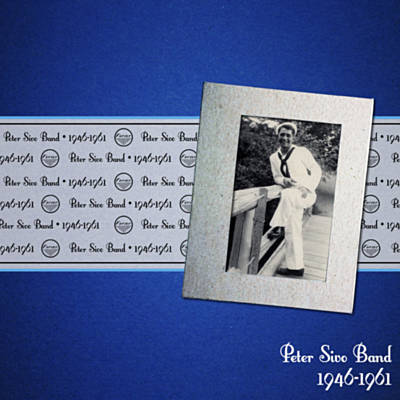 Peter Sivo Band • 1946-1961 Peter Sivo Band
1946-1961 Peter Sivo Band • 1946-1961
Peter Sivo Band • 1946-1961 Peter Sivo Band
1946-1961 Peter Sivo Band • 1946-1961
Sivo Band • 1946-1961 Peter Sivo Band
1946-1961 Peter Sivo Band • 1946-1961
Peter Sivo Band
1946-1961